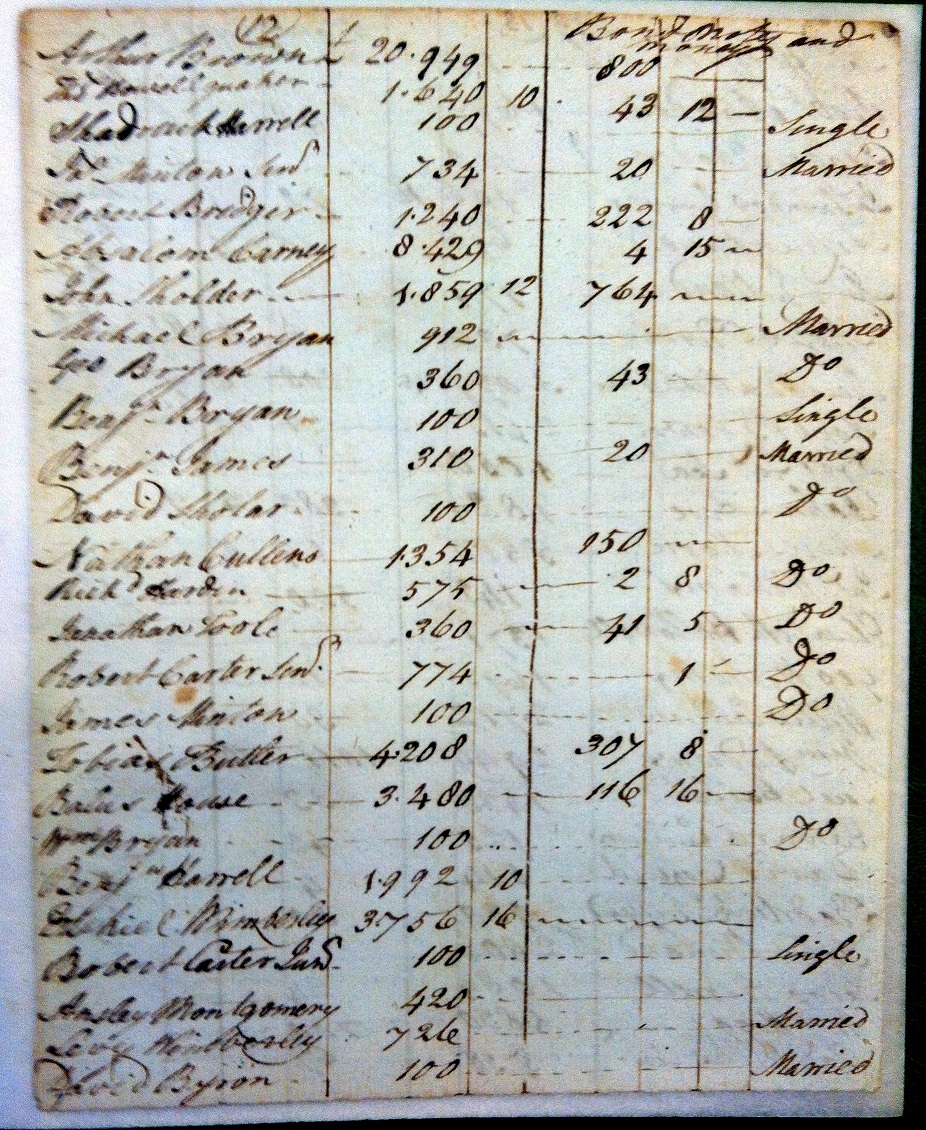 (12) £ Bond Notes and
money
Arthur Brown 20.949 800
Powell quaker 1.640 10 43 12
Shadrack Harrell 100 Single
Minton Senr 734 20 Married
Robert Bridger 1.240 222 8
Absalom Carney 8.429 4 15
John Sholder 1.859 12 764
Michael Bryan 912 Married
Geo Bryan 360 43 Do
Benjn Bryan 100 Single
Benjn James 310 20 Married
David Sholar 100 Do
Nathan Cullens 1.354 150
Richd Harden 575 2 8 Do
Jonathan Toole 360 41 5 Do
Robert Carter Senr 774 1 Do
James Minton 100 Do
Tobias Butler 4.208 307 8
House 3.480 116 16
Wm Bryan 100 Do
Benjn Harrell 1.992 10
Ezekiel Wimberley 3.756 16
Robert Carter Junr 100 Single
Montgomery 420
Levy Wimberley 726 Married
David Byron 100 Married